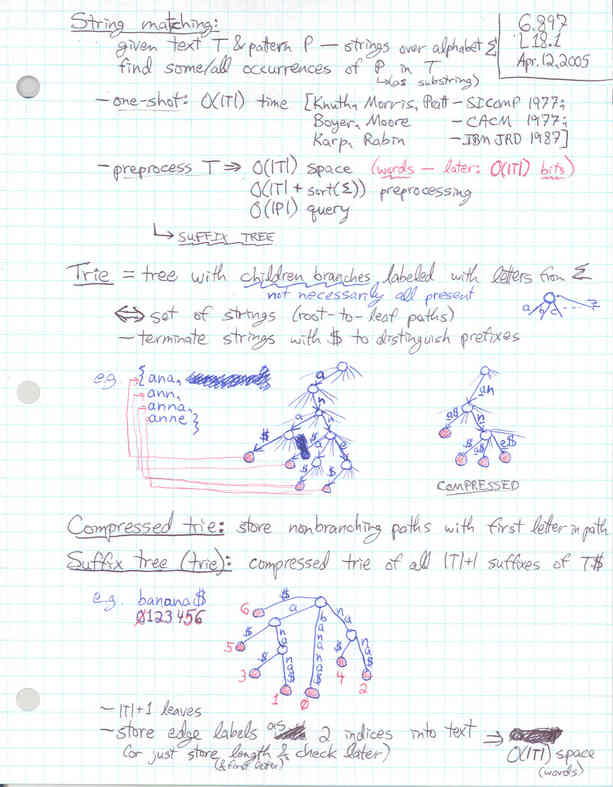 String matching:
6.897
L18.1
Apr. 12, 2005
given text T & pattern P — strings over alphabet Σ
find some/all occurrences of P in T
↳(as substring)
— one-shot: O(|T|) time [Knuth, Morris, Pratt — SICOMP 1977;
Boyer, Moore — CACM 1977;
Karp, Rabin — IBM JRD 1987]
— preprocess T ⇒ O(|T|) space (words — later: O(|T|) bits)
O(|T| + sort(Σ)) preprocessing
O(|P|) query
↳ SUFFIX TREE
Trie = tree with children branches labeled with letters from Σ
not necessarily all present
a b c ...
⇔ set of strings (root-to-leaf paths)
— terminate strings with $ to distinguish prefixes
e.g. {ana,
ann,
anna,
anne}
a
n
a n
$ $ a e
$ $
an
a$ n
$ a$ e$
COMPRESSED
Compressed trie: store nonbranching paths with first letter in path
Suffix tree (trie): compressed trie of all |T|+1 suffixes of T$
e.g. banana$
0123456
6 $ a banana$ na
5 $ na $ na$
3 $ na$ 4 2
1 0
— |T|+1 leaves
— store edge labels as 2 indices into text ⇒
(or just store length & check later) O(|T|) space
(& first letter) (words)